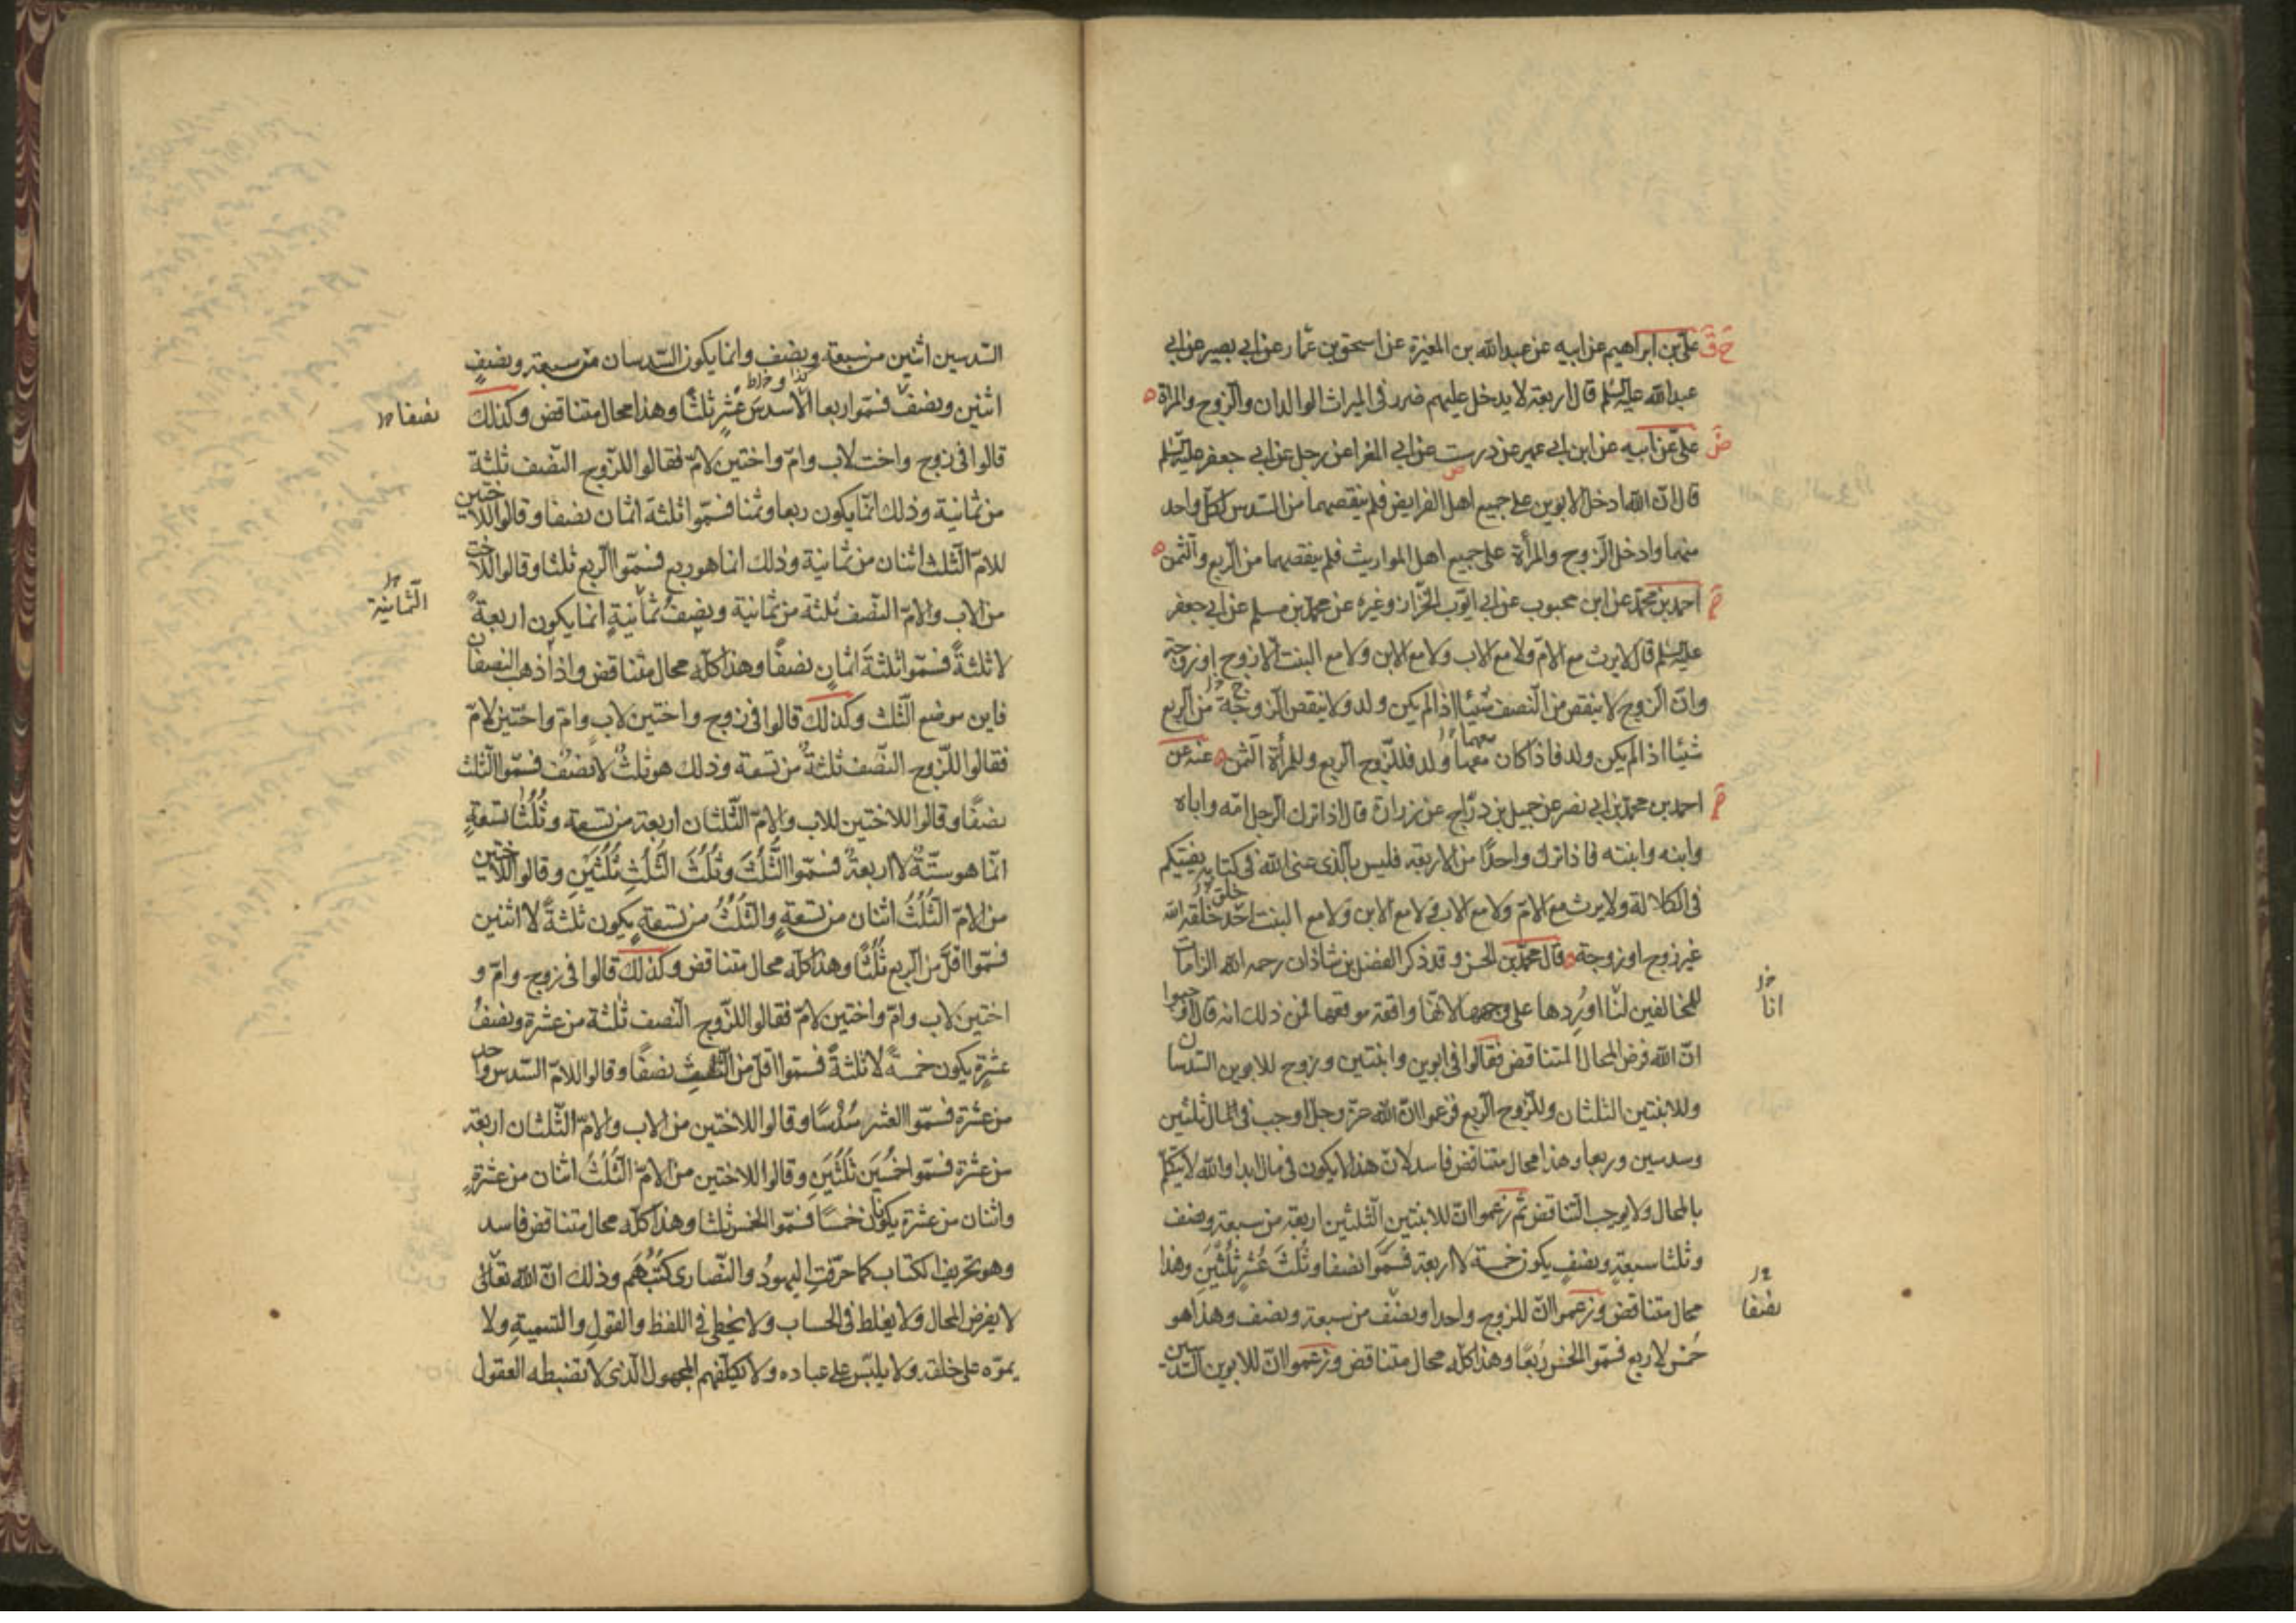 علي بن ابراهيم عن ابيه عن عبدالله بن المغيرة عن اسحق بن عمار عن ابي بصير عن ابي
عبدالله عليه السلم قال اربعة لا يدخل عليهم ضرر في الميراث الوالدان والزوج والمراة
علي عن ابيه عن ابن ابي عمير عن درست عن ابي المغرا عن رجل عن ابي جعفر عليه السلم
قال ان الله ادخل الابوين على جميع اهل الفرايض فلم ينقصهما من السدس لكل واحد
منهما وادخل الزوج والمرأة على جميع اهل المواريث فلم ينقصهما من الربع والثمن
احمد بن محمد عن ابن محبوب عن ابي ايوب الخزاز وغيره عن محمد بن مسلم عن ابي جعفر
عليه السلم قال لا يرث مع الام ولا مع الاب ولا مع الابن ولا مع البنت الا زوج او زوجة
وان الزوج لا ينقص من النصف شيئا اذا لم يكن ولد ولا ينقص الزوجة من الربع
شيئا اذا لم يكن ولد فاذا كان معهما ولد فللزوج الربع وللمرأة الثمن عنه عن
احمد بن محمد بن ابي نصر عن جميل بن دراج عن زرارة قال اذا ترك الرجل امه واباه
وابنه وابنته فاذا ترك واحدا من الاربعة فليس بالذي عنى الله في كتابه يفتيكم
في الكلالة ولا يرث مع الام ولا مع الاب ولا مع الابن ولا مع البنت احد خلقه الله
غير زوج او زوجة قال محمد بن الحسن وقد ذكر الفضل بن شاذان رحمه الله الزامات
للمخالفين لنا اوردها على وجهها لانها واقعة موقعها فمن ذلك انه قال اوجبوا
انا
ان الله فرض المحال المتناقض فقالوا في ابوين وابنتين وزوج للابوين السدسان
وللابنتين الثلثان وللزوج الربع فزعموا ان الله عز وجل اوجب في المال ثلثين
وسدسين وربعا وهذا محال متناقض فاسد لان هذا لا يكون في مال ابدا والله لا يتكلم
بالمحال ولا يوجب التناقض ثم زعموا ان للابنتين الثلثين اربعة من سبعة ونصف
وثلثا سبعة ونصف يكون خمسة لا اربعة فسموا نصفا وثلث عشر ثلثين وهذا
محال متناقض وزعموا ان للزوج واحدا ونصف من سبعة ونصف وهذا هو
نصفا
خمس لا ربع فسموا الخمس ربعا وهذا كله محال متناقض وزعموا ان للابوين السدسين
السدسين اثنين من سبعة ونصف وانما يكون السدسان من سبعة ونصف
اثنين ونصف فسموا ربعا الا سدس عشر ثلثا وهذا محال متناقض وكذلك
نصفا
قالوا في زوج واخت لاب وام واختين لام فقالوا للزوج النصف ثلثة
من ثمانية وذلك انما يكون ربعا وثمنا فسموا ثلثة اثمان نصفا وقالوا للاختين
للام الثلث اثنان من ثمانية وذلك انما هو ربع فسموا الربع ثلثا وقالوا للاخت
من الاب والام النصف ثلثة من ثمانية ونصف ثمانية انما يكون اربعة
الثمانية
لا ثلثة فسموا ثلثة اثمان نصفا وهذا كله محال متناقض واذا ذهب النصفان
فاين موضع الثلث وكذلك قالوا في زوج واختين لاب وام واختين لام
فقالوا للزوج النصف ثلثة من تسعة وذلك هو ثلث لا نصف فسموا الثلث
نصفا وقالوا للاختين للاب والام الثلثان اربعة من تسعة وثلثا تسعة
انما هو ستة لا اربعة فسموا الثلث وثلث الثلث ثلثين وقالوا للاختين
من الام الثلث اثنان من تسعة والثلث من تسعة يكون ثلثة لا اثنين
فسموا اقل من الربع ثلثا وهذا كله محال متناقض وكذلك قالوا في زوج وام و
اختين لاب وام واختين لام فقالوا للزوج النصف ثلثة من عشرة ونصف
عشرة يكون خمسة لا ثلثة فسموا اقل من الثلث نصفا وقالوا للام السدس واحد
من عشرة فسموا العشر سدسا وقالوا للاختين من الاب والام الثلثان اربعة
من عشرة فسموا خمسين ثلثين وقالوا للاختين من الام الثلث اثنان من عشرة
واثنان من عشرة يكونان خمسا فسموا الخمس ثلثا وهذا كله محال متناقض فاسد
وهو تحريف الكتاب كما حرفت اليهود والنصارى كتبهم وذلك ان الله تعالى
لا يفرض المحال ولا يغلط في الحساب ولا يخطي في اللفظ والقول والتسمية ولا
يموه على خلقه ولا يلبس على عباده ولا يكلفهم المجهول الذي لا تضبطه العقول